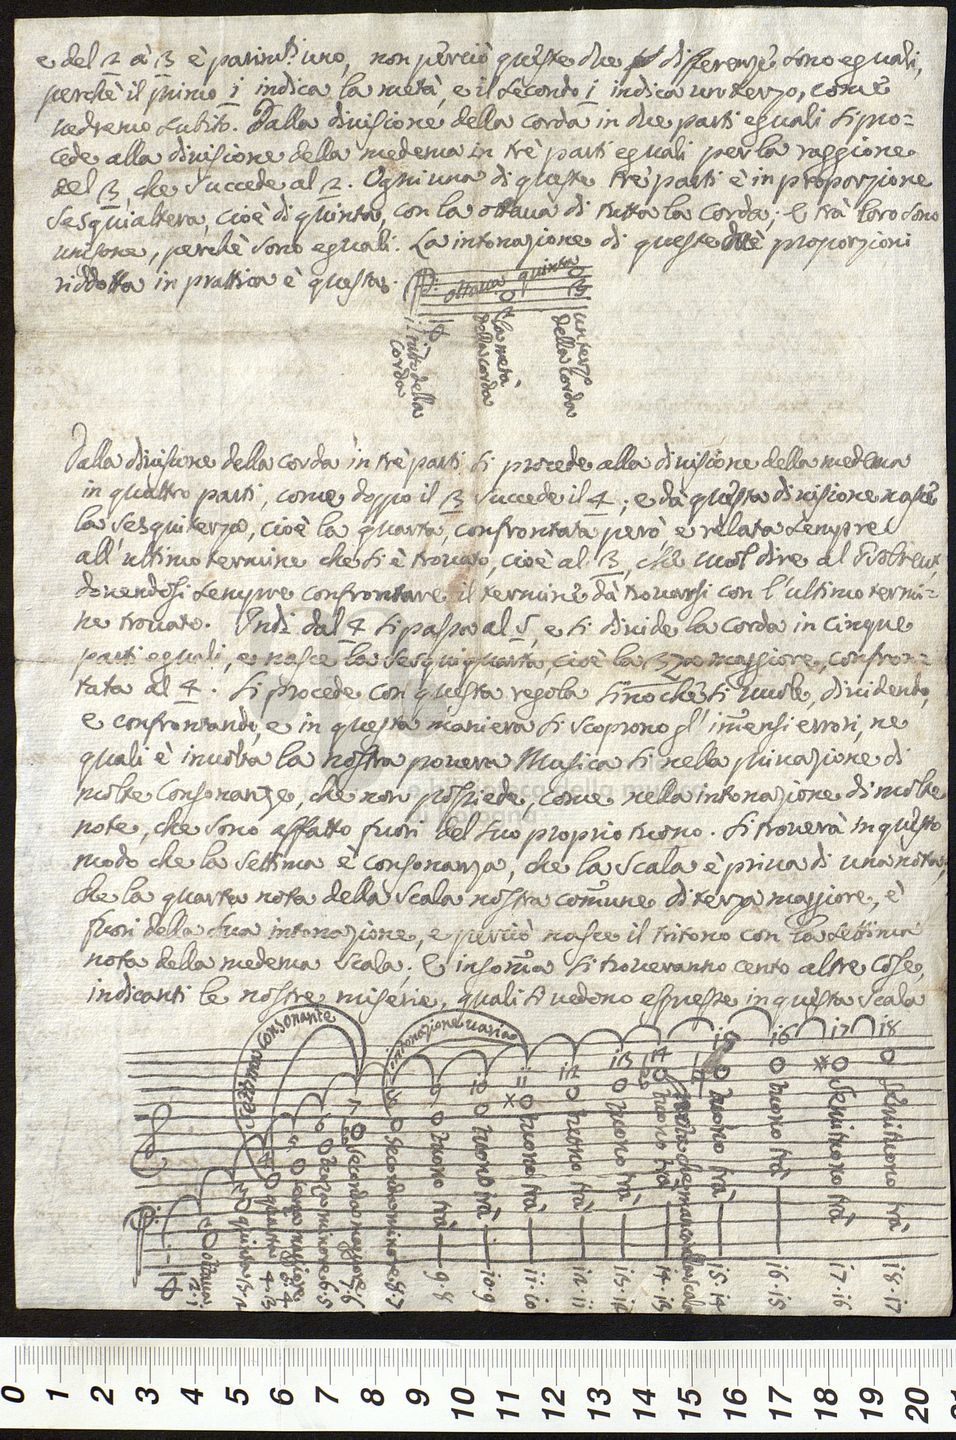 e del 2 à 3 è parimte uno, non perciò queste due differenze sono eguali,
perchè il primo 1 indica la metà, e il secondo 1 indica un terzo, come
vedremo subito. Dalla divisione della corda in due parti eguali si pro=
cede alla divisione della medema in trè parti eguali per la raggione
del 3, che succede al 2. Ogni una di queste trè parti è in proporzione
sesquialtera, cioè di quinta, con la ottava di tutta la corda; e trà loro sono
unisone, perchè sono eguali. La intonazione di queste proporzioni
riddotta in prattica è questa.
ottava quinta
1
2
3
il tutto della corda
la metà della corda
un terzo della corda
Dalla divisione della corda in trè parti si procede alla divisione della medema
in quattro parti, come doppo il 3 succede il 4; e dà questa divisione nasce
la sesquiterza, cioè la quarta, confrontata però, e relata sempre
all'ultimo termine che si è trovato, cioè al 3, che vuol dire al
dovendosi sempre confrontare il termine dà trovarsi con l'ultimo termi=
ne trovato. Indi dal 4 si passa al 5, e si divide la corda in cinque
parti eguali, e nasce la sesquiquarta, cioè la 3za maggiore, confron=
tata al 4. Si procede con questa regola sino chè si vuole, dividendo,
e confrontando, e in questa maniera si scoprono gl'imensi errori, ne
quali è involta la nostra povera Musica sì nella privazione di
molte consonanze, che non possiede, come nella intonazione di molte
note, che sono affatto fuori del suo proprio tuono. Si troverà in questo
modo che la settima è consonanza, che la scala è priva di una nota,
che la quarta nota della scala nostra comune di terza maggiore, è
fuori della sua intonazione, e perciò nasce il tritono con la settima
nota della medema scala; e insoma si troveranno cento altre cose,
indicanti le nostre miserie, quali si vedono espresse in questa scala
consonante
intonazione varia
1
2 ottava 2·1
3 quinta 3·2
4 quarta 4·3
5 terza maggiore 5·4
6 terza minore 6·5
7 seconda maggiore 7·6
8 seconda minore 8·7
9 tuono trà 9·8
10 tuono trà 10·9
11 tuono trà 11·10
12 tuono trà 12·11
13 tuono trà 13·12
14 tuono trà 14·13
che manca alla scala
15 tuono trà 15·14
16 tuono trà 16·15
17 semituono trà 17·16
18 semituono trà 18·17
0 1 2 3 4 5 6 7 8 9 10 11 12 13 14 15 16 17 18 19 20